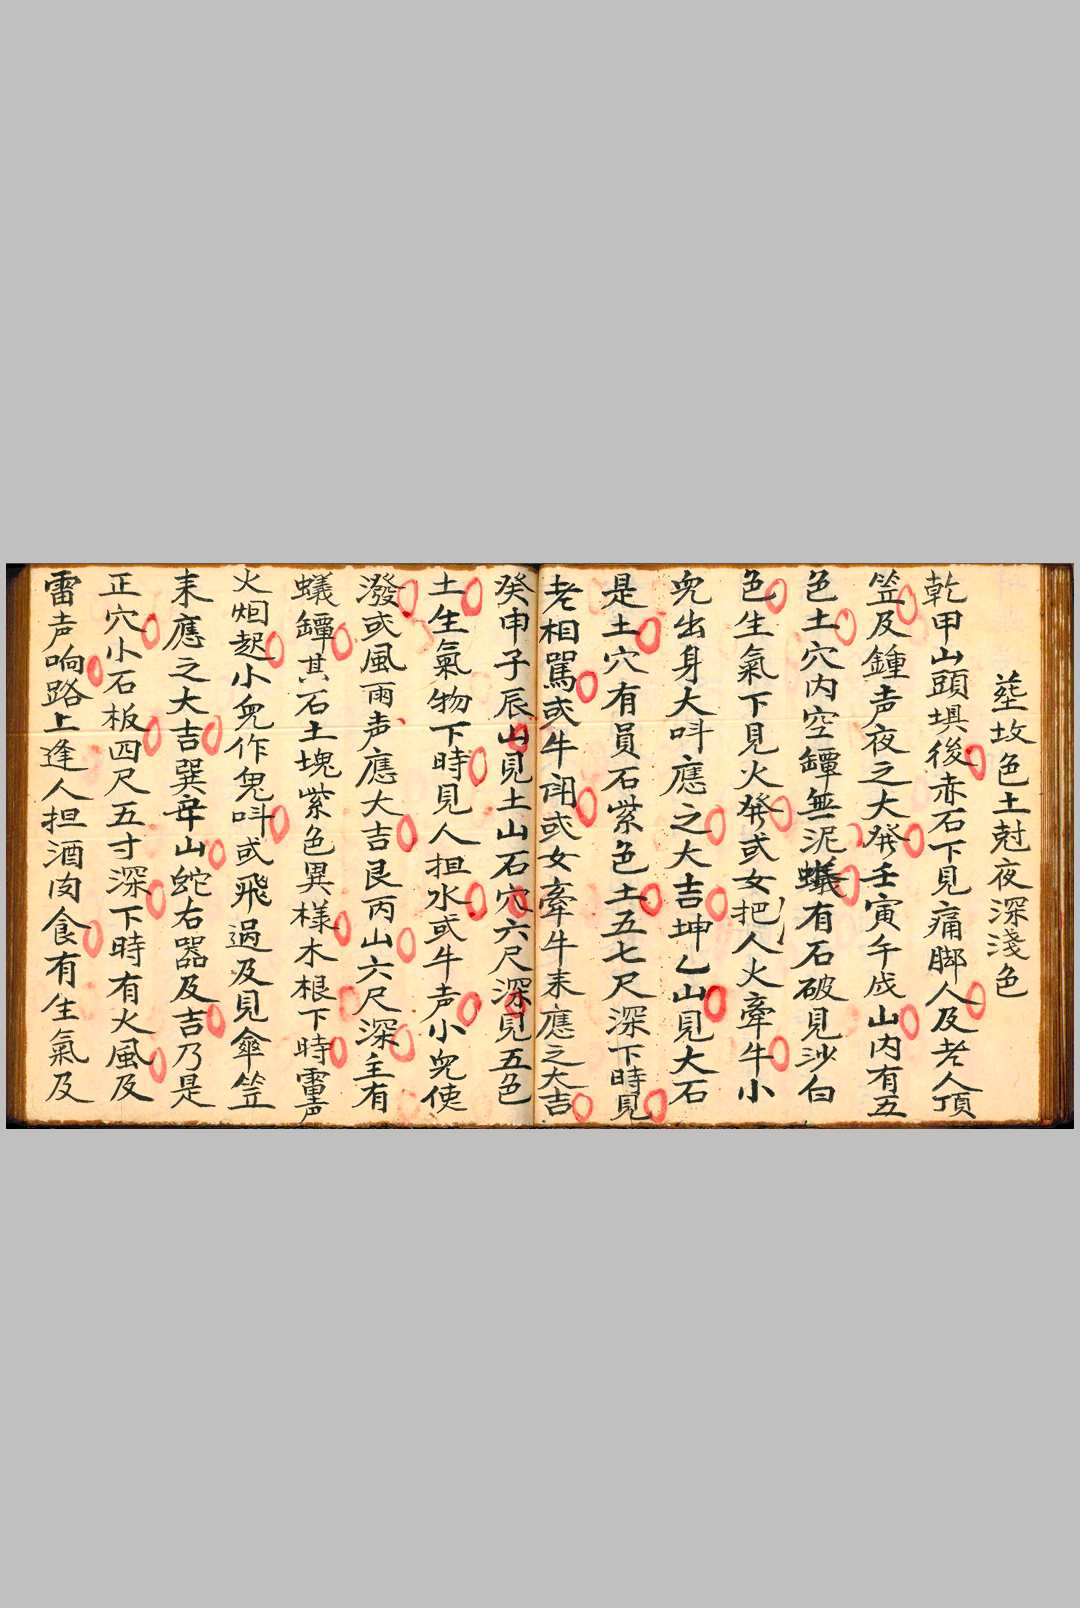 葬坟色土尅夜深淺色
乾甲山頭埧後赤石下見痛脚人及老人頂
笠及鍾声夜之大發壬寅午戌山内有五
色土穴内空罈無泥蟻有石破見沙白
色生氣下見火發或女把人火牽牛小
兒出身大呌應之大吉坤乙山見大石
是土穴有員石紫色土五七尺深下時見
老相罵或牛闹或女牽牛耒應之大吉
癸申子辰山見土山石穴六尺深見五色
土生氣物下時見人担水或牛声小兒使
潑或風雨声應大吉艮丙山六尺深主有
蟻罈其石土塊紫色異樣木根下時雷声
火烟起小兒作鬼呌或飛過及見傘笠
耒應之大吉巽辛山蛇右器及吉乃是
正穴小石板四尺五寸深下時有大風及
雷声响路上逢人担酒肉食有生氣及